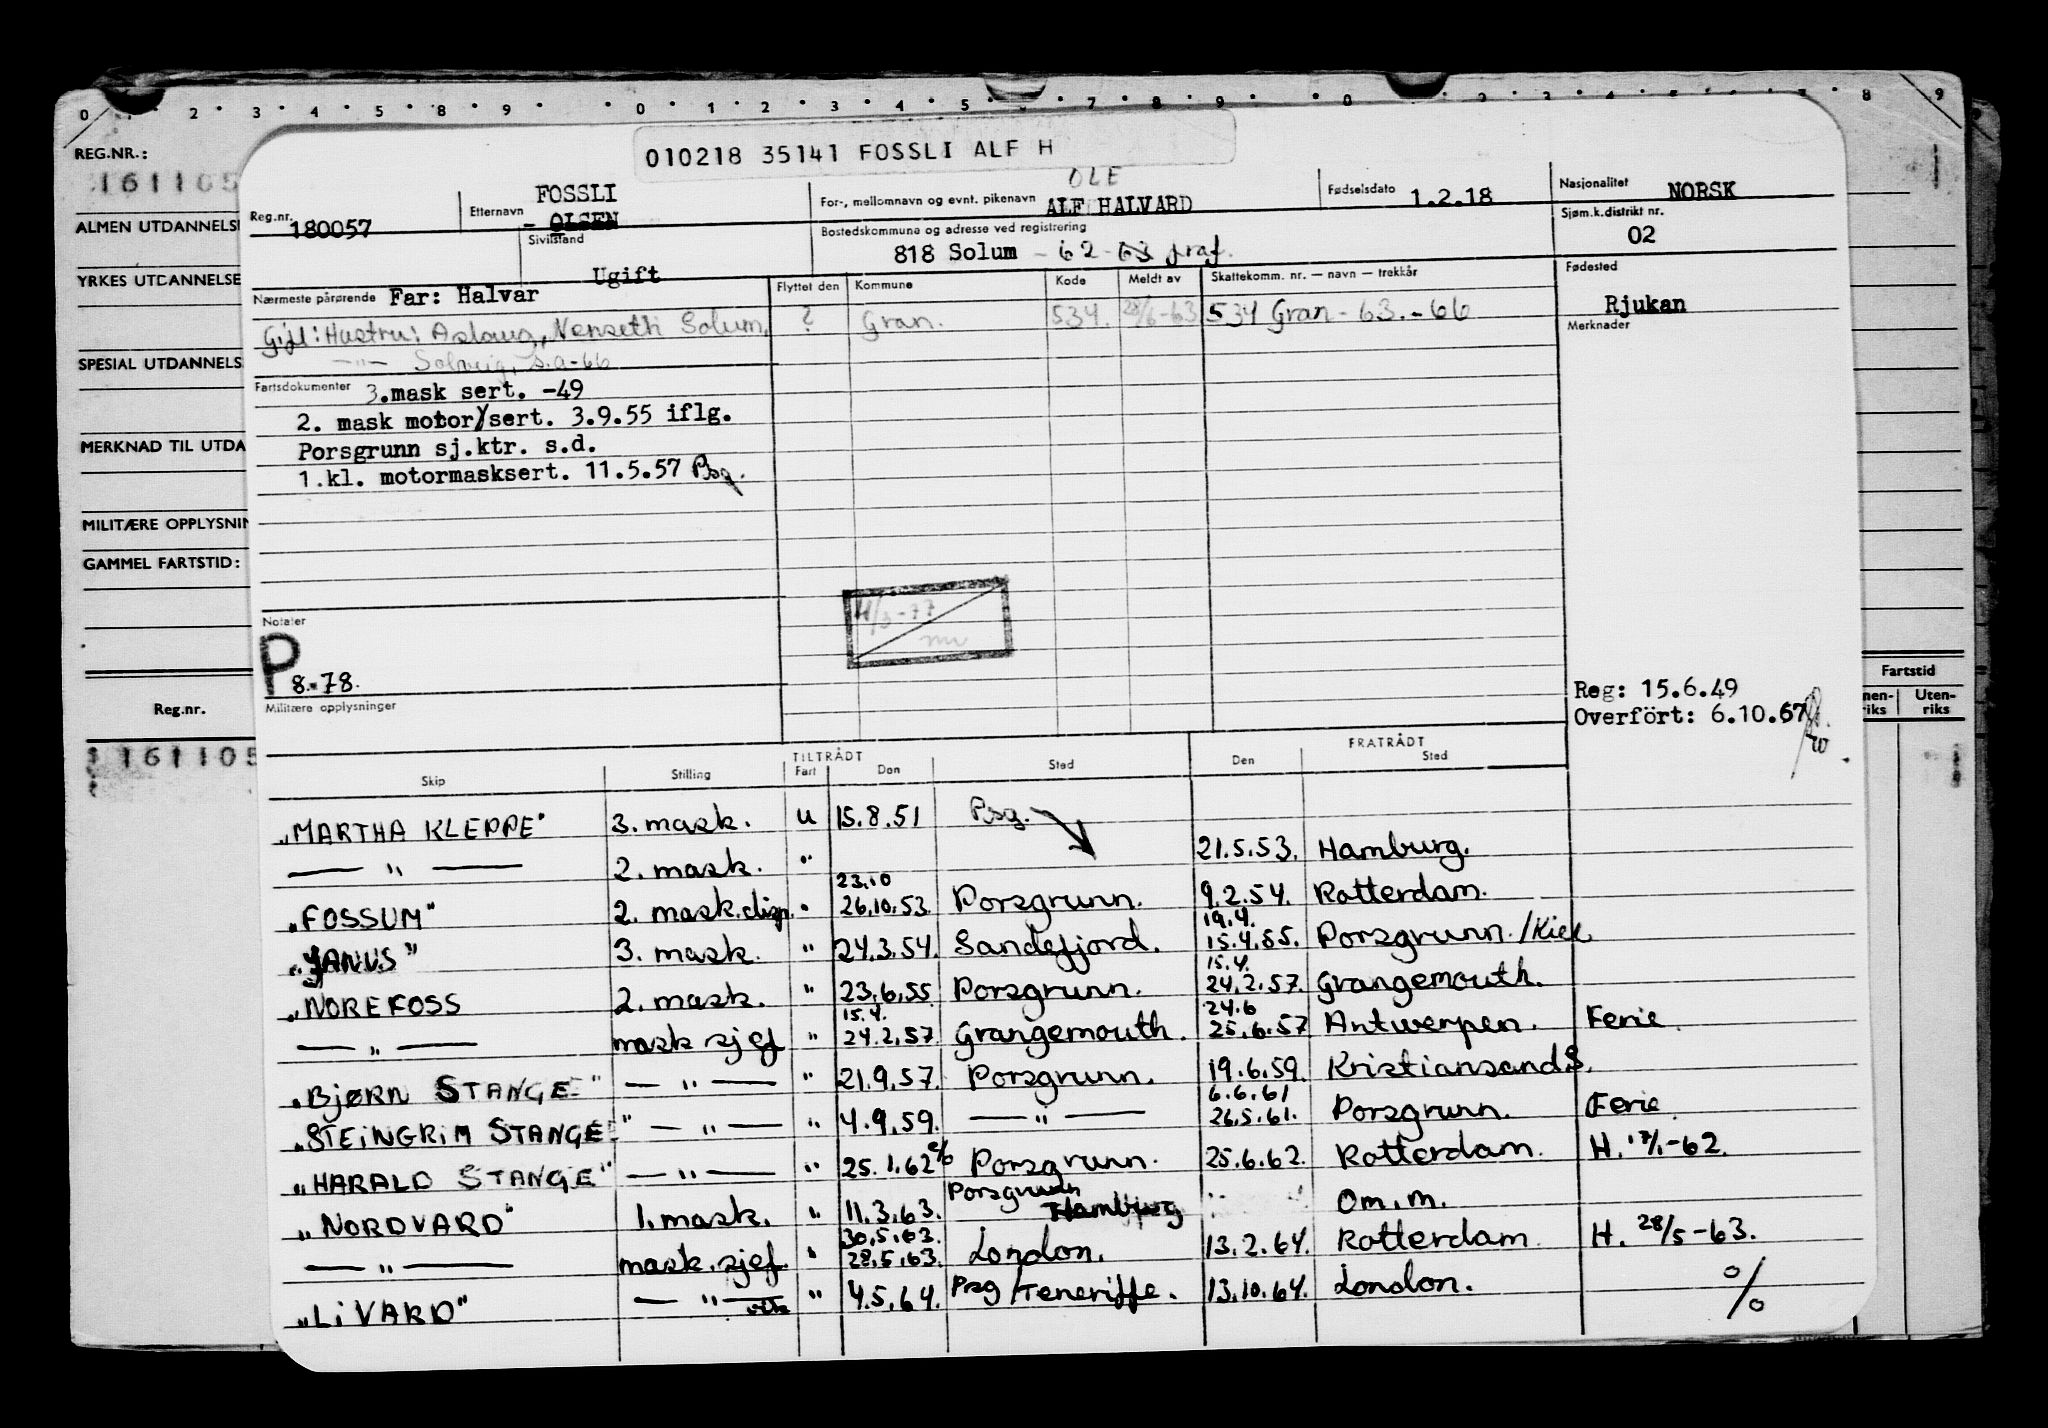 0 2 3 4 5 8 9 0 1 2 3 4 5 7 8 9 0 8 9
REG.NR.:
161105
ALMEN UTDANNELS
YRKES UTDANNELSE
SPESIAL UTDANNELS
MERKNAD TIL UTDA
MILITÆRE OPPLYSNIN
GAMMEL FARTSTID:
Reg.nr.
161105
Fartstid
nen-riks Uten-riks
010218 35141 FOSSLI ALF H
Reg.nr. 180057 Etternavn FOSSLI - OLSEN For-, mellomnavn og evnt. pikenavn ALF HALVARD OLE Fødselsdato 1.2.18 Nasjonalitet NORSK
Sivilstand Ugift Bostedskommune og adresse ved registrering 818 Solum - 62-63 Sjøm.k.distrikt nr. 02
Nærmeste pårørende Far: Halvar Flyttet den Kommune Kode Meldt av Skattekomm. nr. — navn — trekkår Fødested Rjukan
Gift: Hustru: Aslaug, Nenseth Solum, ? Gran. 534. 28/6-63 534 Gran - 63.-66 Merknader
—"— Solveig, s.a-66
Fartsdokumenter 3.mask sert. -49
2. mask motor/sert. 3.9.55 iflg.
Porsgrunn sj.ktr. s.d.
1.kl. motormasksert. 11.5.57 Psg.
Notater
P 8.-78.
Militære opplysninger
Reg: 15.6.49
Overfört: 6.10.67
TILTRÅDT FRATRÅDT
Skip Stilling Fart Den Sted Den Sted
"MARTHA KLEPPE" 3. mask. u 15.8.51 Psg.
— " — 2. mask. " 21.5.53. Hamburg.
23.10
"FOSSUM" 2. mask.disp. " 26.10.53. Porsgrunn. 9.2.54. Rotterdam.
19.4.
"JANUS" 3. mask. " 24.3.54. Sandefjord. 15.4.55. Porsgrunn./Kiel
15.4.
"NOREFOSS 2. mask. " 23.6.55 Porsgrunn. 24.2.57. Grangemouth.
15.4. 24.6
— " — mask sjef " 24.2.57 Grangemouth. 25.6.57 Antwerpen. Ferie.
"BJØRN STANGE" — " — " 21.9.57. Porsgrunn. 19.6.59. Kristiansand S.
6.6.61
"STEINGRIM STANGE" — " — " 4.9.59. — " — 26.5.61. Porsgrunn. Ferie.
"HARALD STANGE" — " — " 25.1.62 Porsgrunn. 25.6.62. Rotterdam. H. 17/1-62.
Porsgrunn
"NORDVARD" 1. mask. " 11.3.63. Hamburg Om.m.
30.5.63.
— " — mask.sjef. " 28.5.63. London. 13.2.64. Rotterdam. H. 28/5-63.
"LIVARD" — " — " 4.5.64. Psg/Teneriffe. 13.10.64. London. o/o